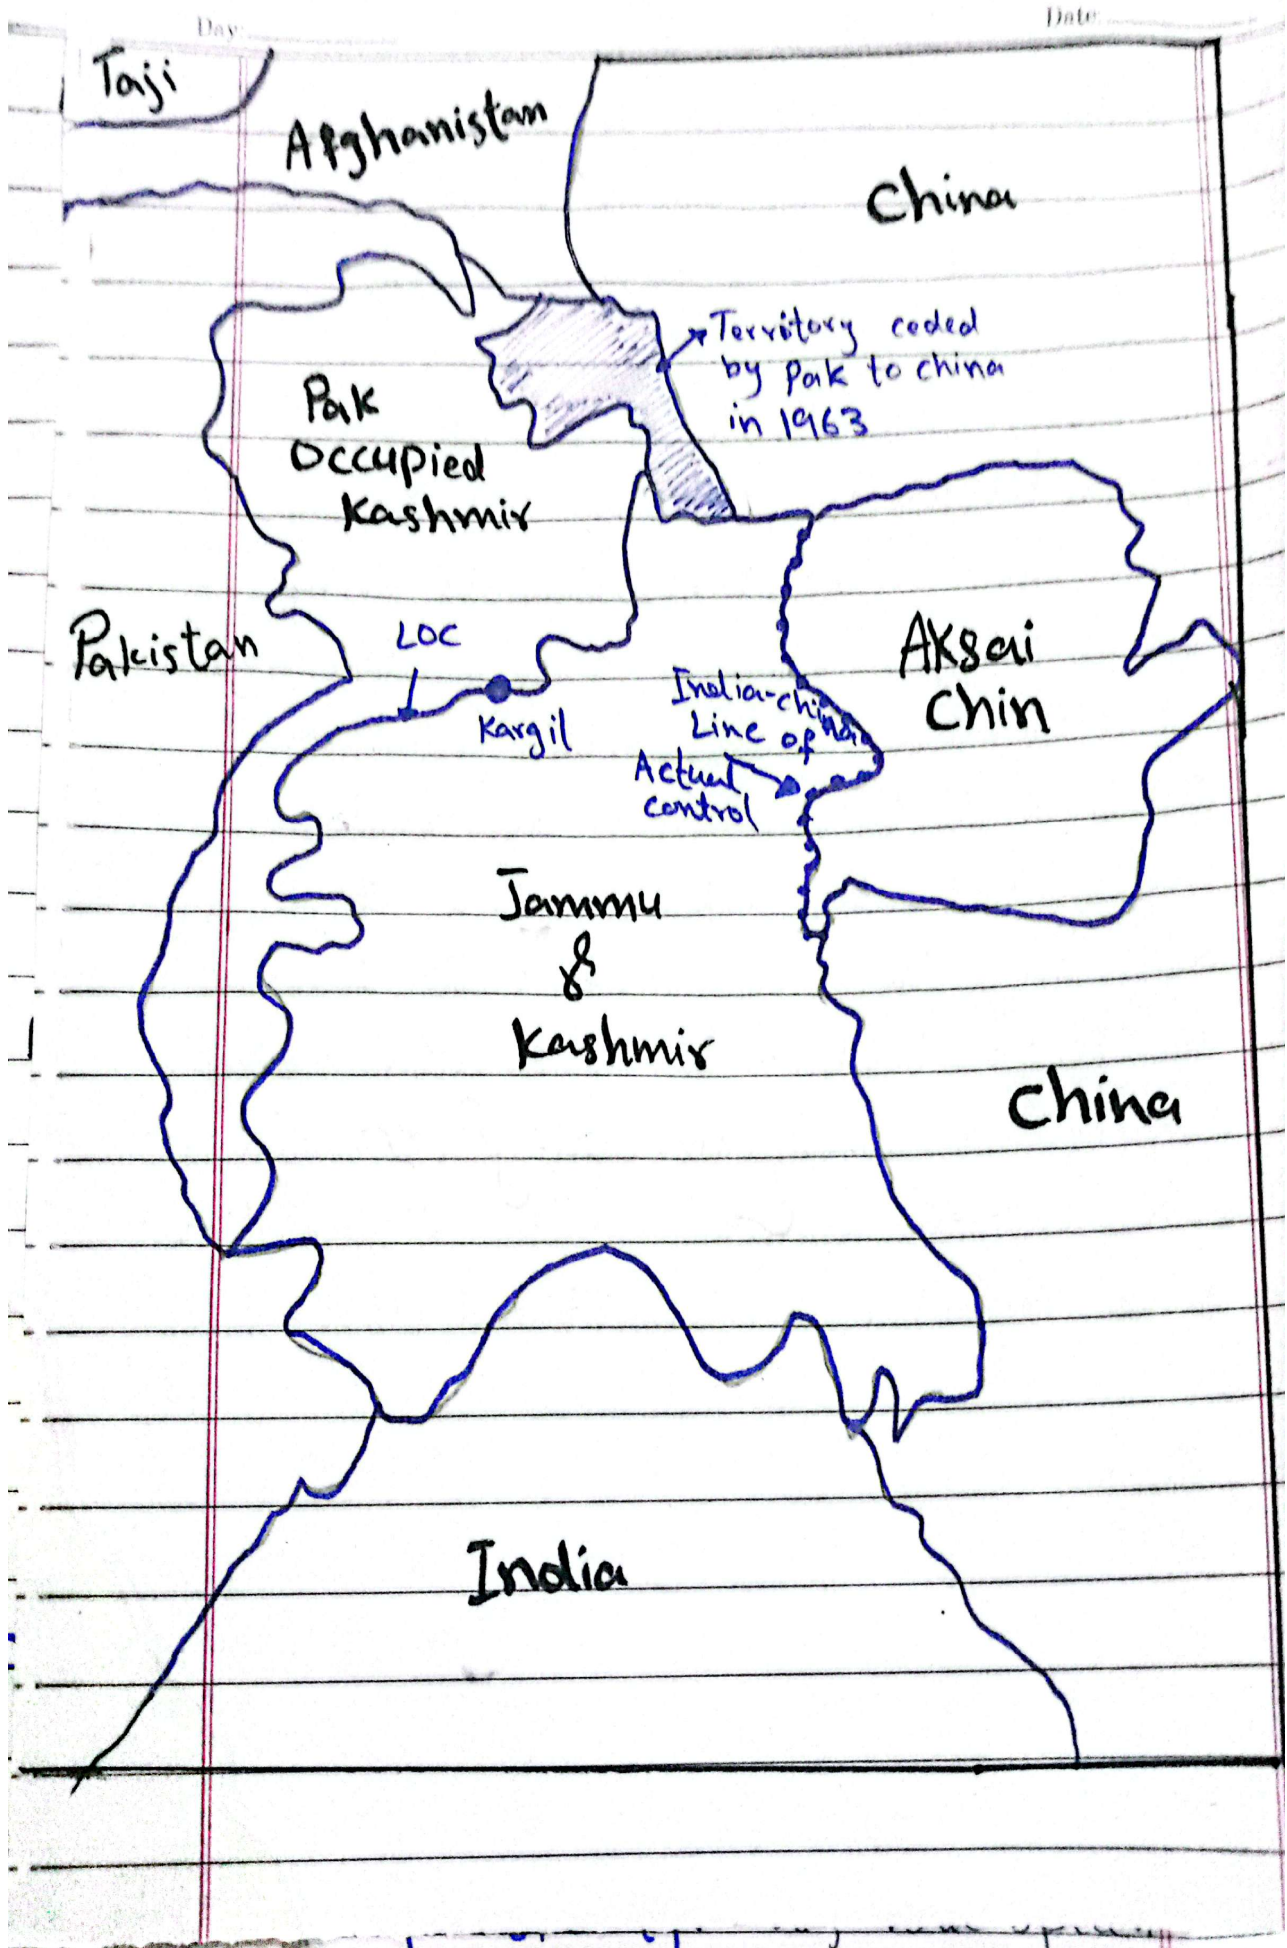 Day
Date
Taji
Afghanistan
China
Territory ceded
by Pak to China
in 1963
Pak
Occupied
Kashmir
Pakistan
LOC
Kargil
India-China
Line of
Actual
control
Aksai
Chin
Jammu
&
Kashmir
China
India